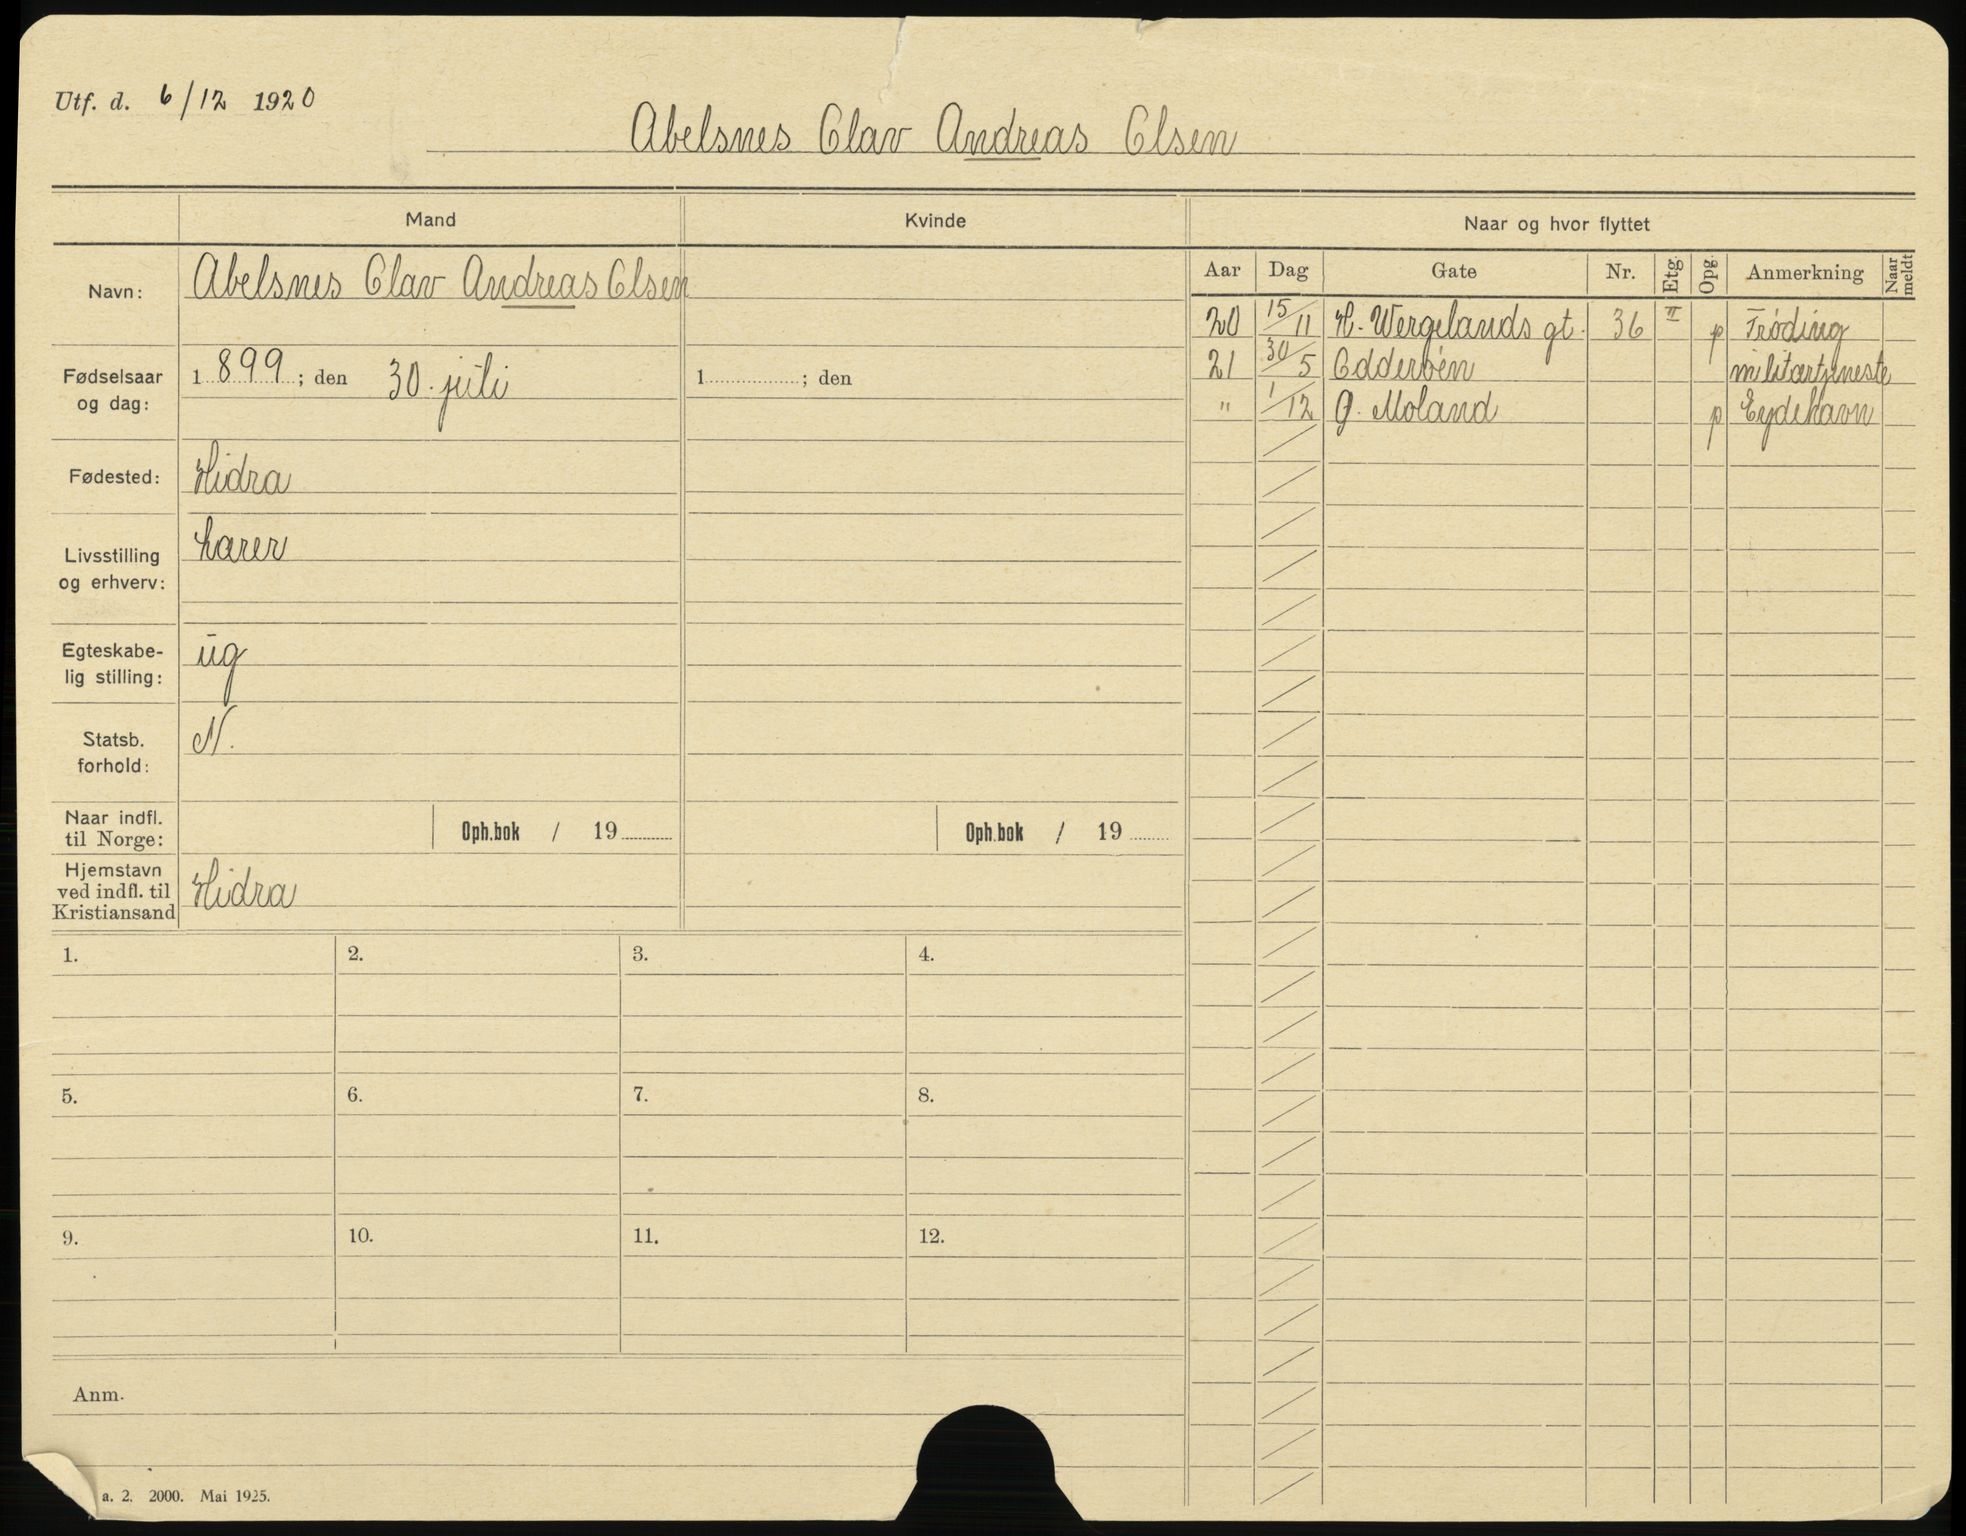 Utf. d. 6/12 1920
Abelsnes Olav Andreas Olsen
Mand Kvinde Naar og hvor flyttet
Navn: Abelsnes Olav Andreas Olsen
Aar Dag Gate Nr. Etg. Opg. Anmerkning Naar meldt
20 15/11 H. Wergelands gt. 36 II p Frøding
21 30/5 Odderøen militærtjeneste
" 1/12 Ø. Moland p Eydehavn
Fødselsaar og dag: 1899; den 30. juli 1 ; den
Fødested: Hidra
Livsstilling og erhverv: Lærer
Egteskabe-
lig stilling: ug
Statsb. forhold: N.
Naar indfl. til Norge: Oph.bok / 19 Oph.bok / 19
Hjemstavn ved indfl. til Kristiansand Hidra
1. 2. 3. 4.
5. 6. 7. 8.
9. 10. 11. 12.
Anm.
a. 2. 2000. Mai 1925.